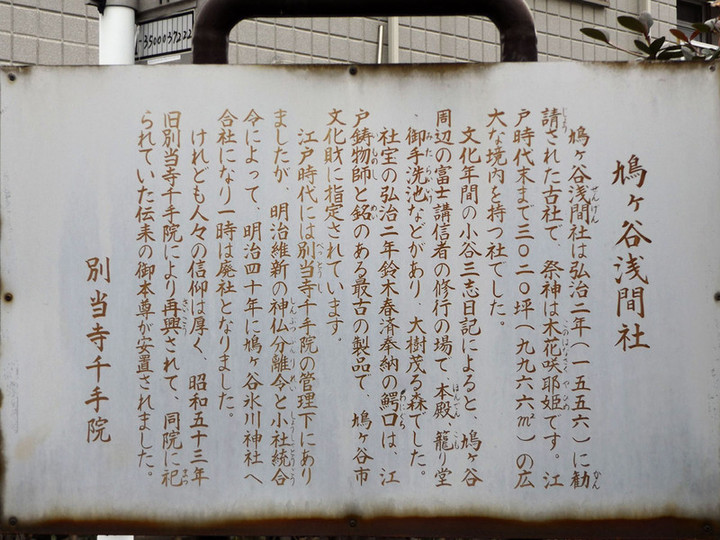 -3500037222
鳩ヶ谷浅間社
鳩ヶ谷浅間社は弘治二年(一五五六)に勧
請された古社で、祭神は木花咲耶姫です。江
戸時代末まで三〇二〇坪(九九六六㎡)の広
大な境内を持つ社でした。
文化年間の小谷三志日記によると、鳩ヶ谷
周辺の富士講信者の修行の場で、本殿、籠り堂
、御手洗池などがあり、大樹茂る森でした。
社宝の弘治二年鈴木春済奉納の鰐口は、江
戸鋳物師と銘のある最古の製品で、鳩ヶ谷市
文化財に指定されています。
江戸時代には別当寺千手院の管理下にあり
ましたが、明治維新の神仏分離令と小社統合
令によって、明治四十年に鳩ヶ谷氷川神社へ
合社になり一時は廃社となりました。
けれども人々の信仰は厚く、昭和五十三年
旧別当寺千手院により再興されて、同院に祀
られていた伝来の御本尊が安置されました。
別当寺千手院